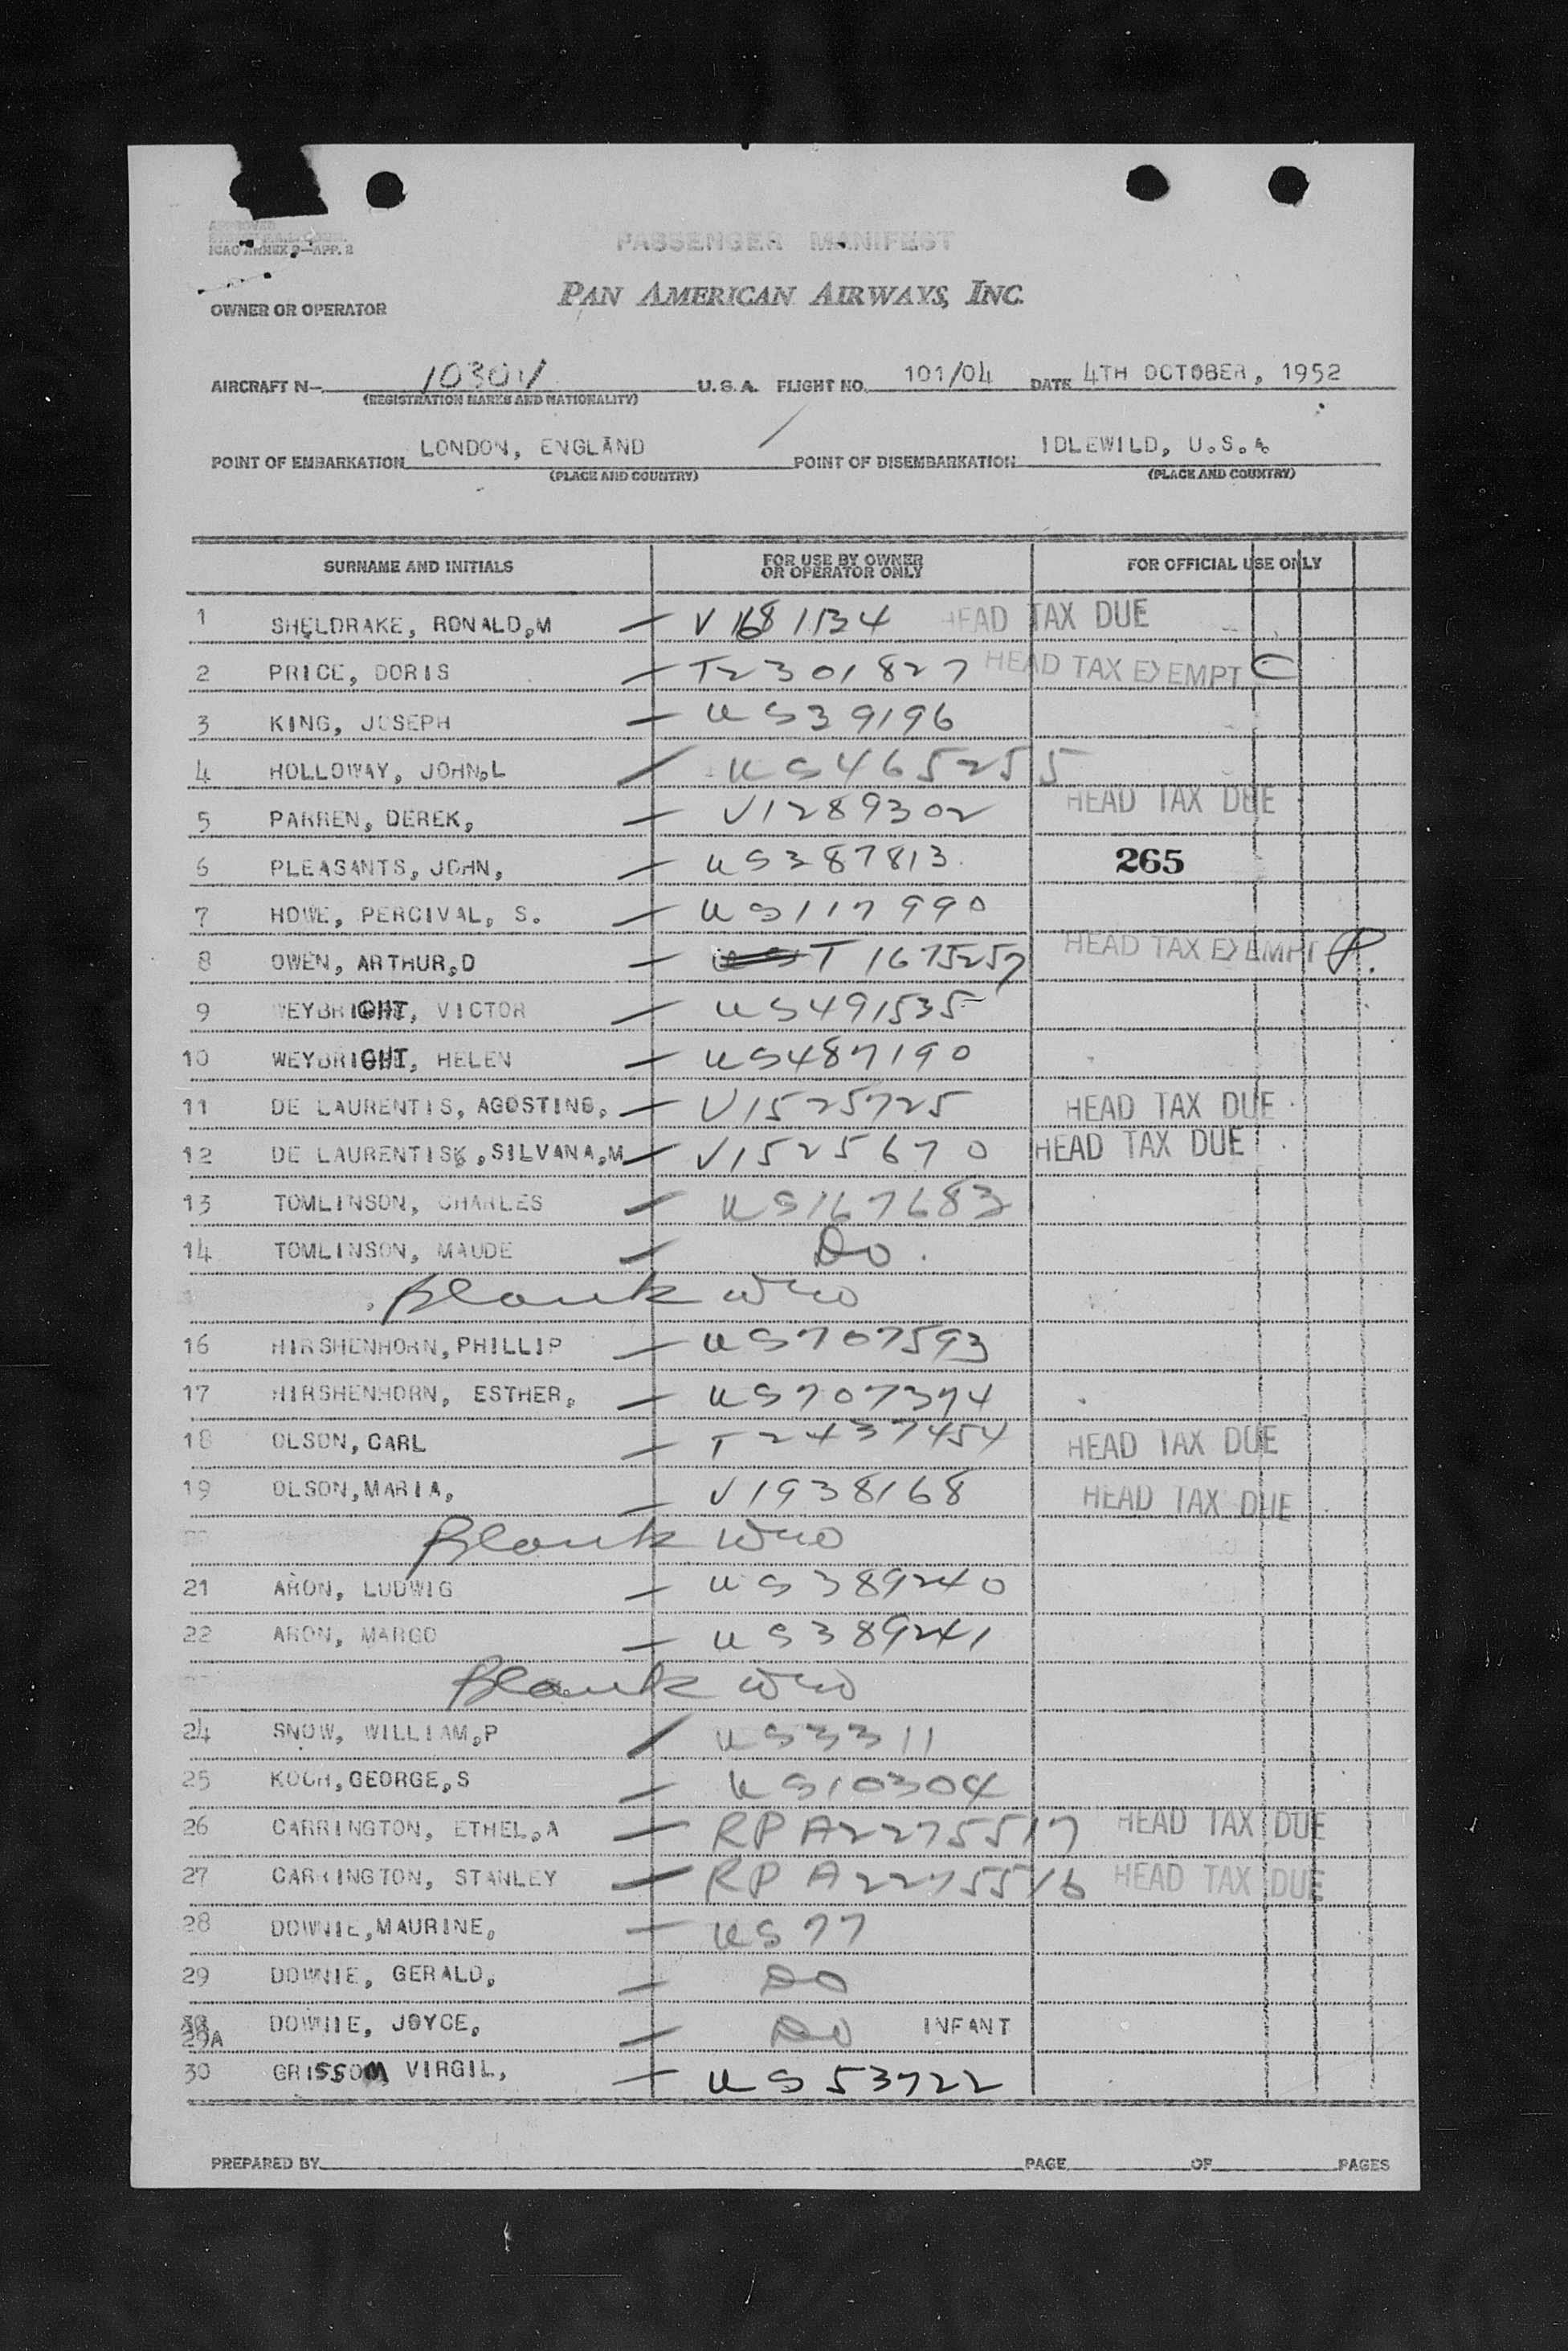 APPROVED
ICAO ANNEX 9—APP. 2
PASSENGER MANIFEST
PAN AMERICAN AIRWAYS, INC.
OWNER OR OPERATOR
AIRCRAFT N— 1030V U.S.A. FLIGHT NO. 101/04 DATE 4TH OCTOBER, 1952
(REGISTRATION MARKS AND NATIONALITY)
POINT OF EMBARKATION LONDON, ENGLAND POINT OF DISEMBARKATION IDLEWILD, U.S.A.
(PLACE AND COUNTRY) (PLACE AND COUNTRY)
SURNAME AND INITIALS FOR USE BY OWNER OR OPERATOR ONLY FOR OFFICIAL USE ONLY
1 SHELDRAKE, RONALD,M — V 1681534 HEAD TAX DUE
2 PRICE, DORIS — T2301827 HEAD TAX EXEMPT C
3 KING, JOSEPH — US39196
4 HOLLOWAY, JOHN,L / US465255
5 PARREN, DEREK, — V1289302 HEAD TAX DUE
6 PLEASANTS, JOHN, — US387813 265
7 HOWE, PERCIVAL, S. — US117990
8 OWEN, ARTHUR,D — T 1675257 HEAD TAX EXEMPT P.
9 WEYBRIGHT, VICTOR — US491535
10 WEYBRIGHT, HELEN — US487190
11 DE LAURENTIS, AGOSTINO, — V1525725 HEAD TAX DUE
12 DE LAURENTISK,SILVANA,M — V1525670 HEAD TAX DUE
13 TOMLINSON, CHARLES — US167683
14 TOMLINSON, MAUDE — Do.
Blank
16 HIRSHENHORN,PHILLIP — US707593
17 HIRSHENHORN, ESTHER, — US707374
18 OLSON,CARL — T2437454 HEAD TAX DUE
19 OLSON,MARIA, — V1938168 HEAD TAX DUE
Blank
21 ARON, LUDWIG — US389240
22 ARON, MARGO — US389241
Blank
24 SNOW, WILLIAM,P / US3311
25 KOCH,GEORGE,S — US10304
26 CARRINGTON, ETHEL,A — RP A2275517 HEAD TAX DUE
27 CARRINGTON, STANLEY — RP A2275516 HEAD TAX DUE
28 DOWNIE,MAURINE, — US77
29 DOWNIE, GERALD, — DO
29A DOWNIE, JOYCE, — DO INFANT
30 GRISSOM VIRGIL, — US53722
PREPARED BY PAGE OF PAGES